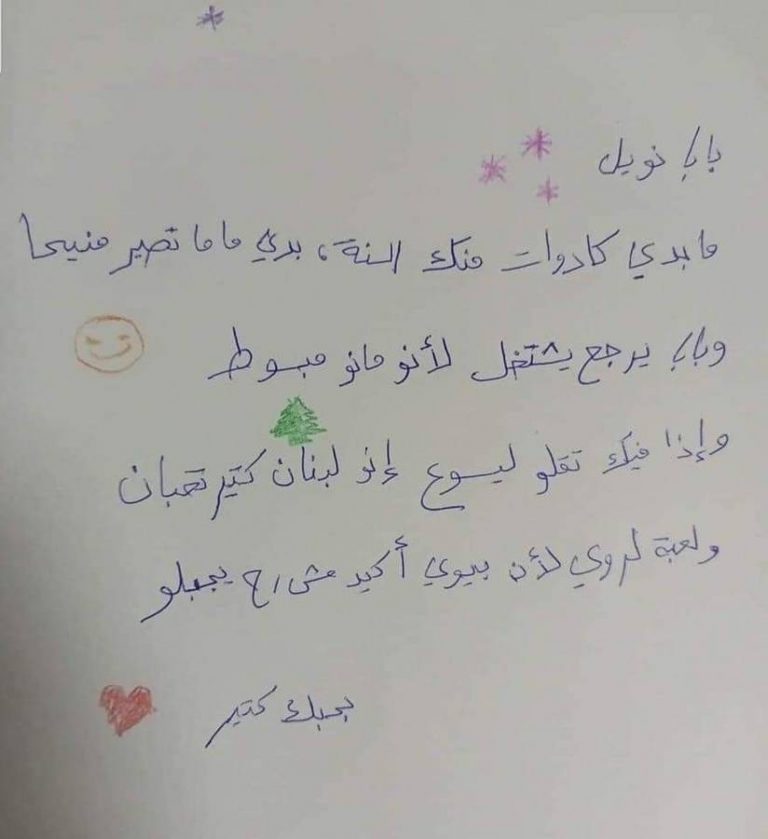 بابا نويل
ما بدي كادوات منك السنة، بدي ماما تصير منيحا
وبابا يرجع يشتغل لأنو مانو مبسوط
وإذا فيك تقلو ليسوع إنو لبنان كتير تعبان
ولعبة لروي لأن بيوي أكيد مش رح يجبلو
بحبك كتير